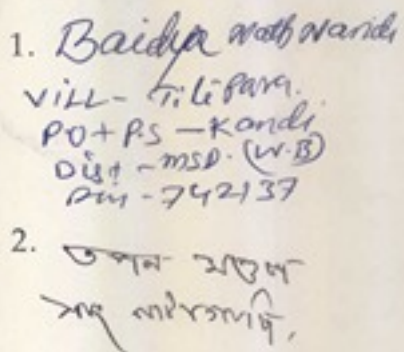 1. Baidya Nath Nandi
VILL- Tili Para.
PO+P.S - Kandi
Dist - MSD. (W.B)
Pin - 742137
2. তপন মণ্ডল